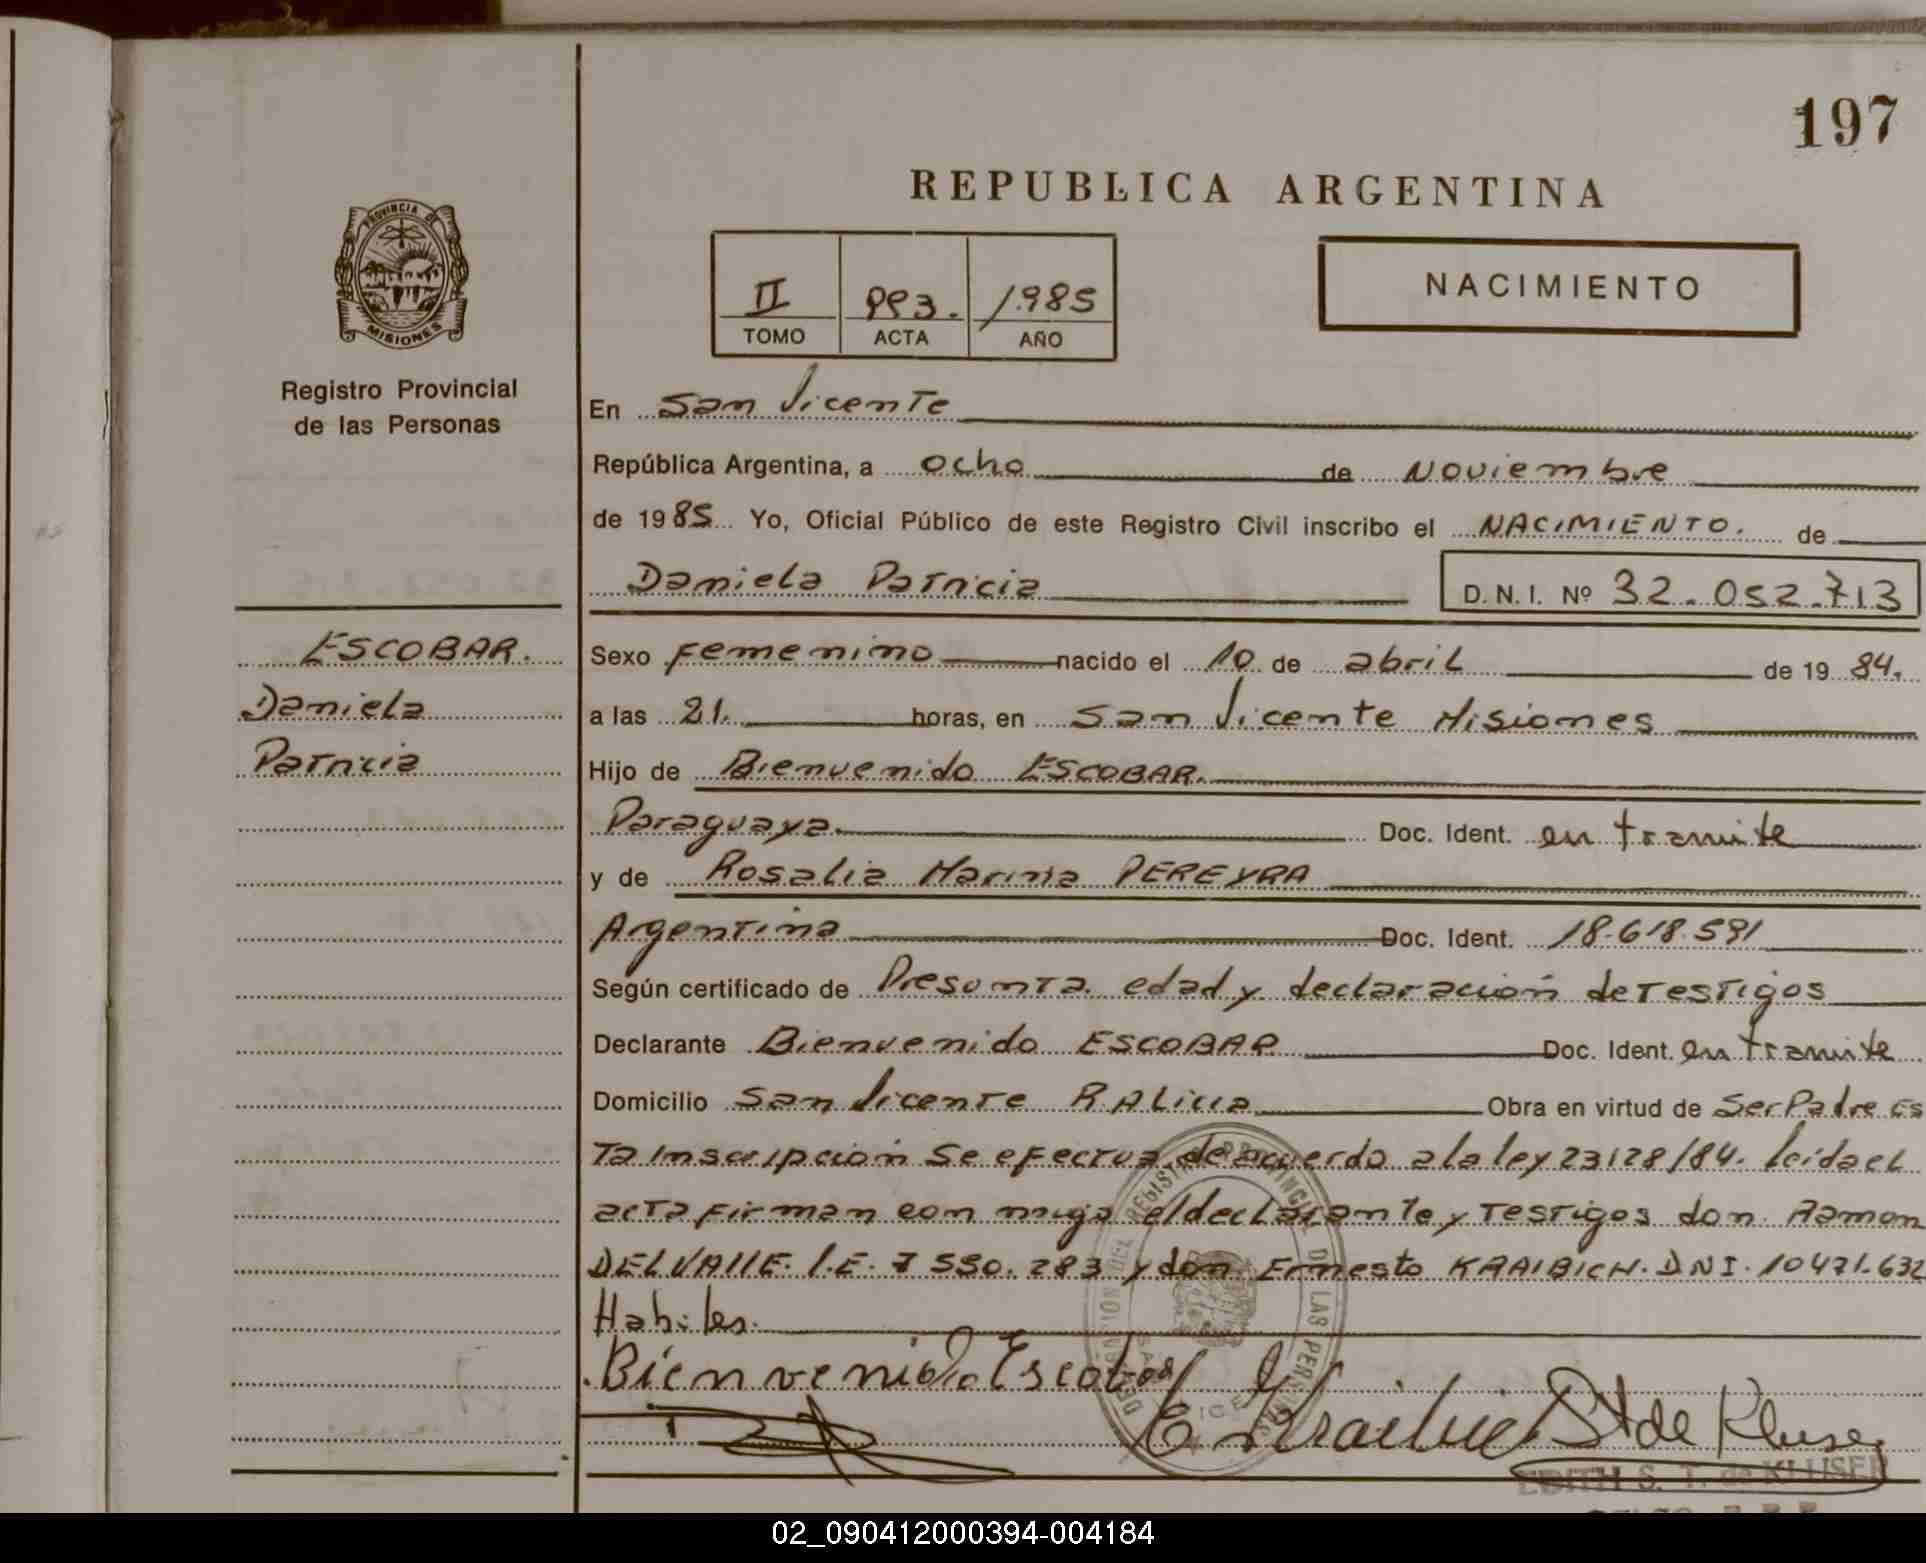 197
REPUBLICA ARGENTINA
PROVINCIA DE
MISIONES
Registro Provincial
de las Personas
II 993. 1985
TOMO ACTA AÑO
NACIMIENTO
En San Vicente
República Argentina, a ocho de Noviembre
de 1985 Yo, Oficial Público de este Registro Civil inscribo el NACIMIENTO. de
Daniela Patricia D. N. I. Nº 32.052.713
ESCOBAR.
Daniela
Patricia
Sexo femenino nacido el 10 de abril de 1984.
a las 21. horas, en San Vicente Misiones
Hijo de Bienvenido ESCOBAR.
Paraguaya. Doc. Ident. en tramite
y de Rosalia Marina PEREYRA
Argentina Doc. Ident. 18.618.591
Según certificado de Presunta edad y declaración de testigos
Declarante Bienvenido ESCOBAR Doc. Ident. en tramite
Domicilio San Vicente R. Alicia Obra en virtud de Ser Padre Es
ta inscripción se efectua de acuerdo a la ley 23128/84. leida el
acta firman con migo el declarante y testigos don Ramon
DEL VALLE. L.E. 7 550.283 y don Ernesto KRAIBICH. DNI. 10471.632
Habiles.
Bienvenido Escobar
EDITH S. T. de KLUSER
02_090412000394-004184